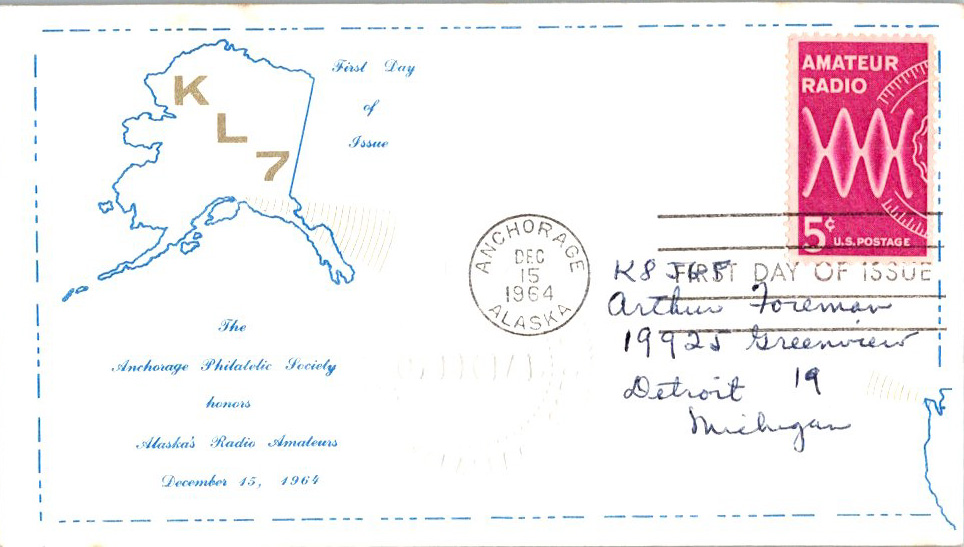 K
L
7
First Day
of
Issue
AMATEUR
RADIO
5¢ U.S. POSTAGE
ANCHORAGE
DEC
15
1964
ALASKA
FIRST DAY OF ISSUE
K8
Arthur Foreman
19925 Greenview
Detroit 19
Michigan
The
Anchorage Philatelic Society
honors
Alaska's Radio Amateurs
December 15, 1964